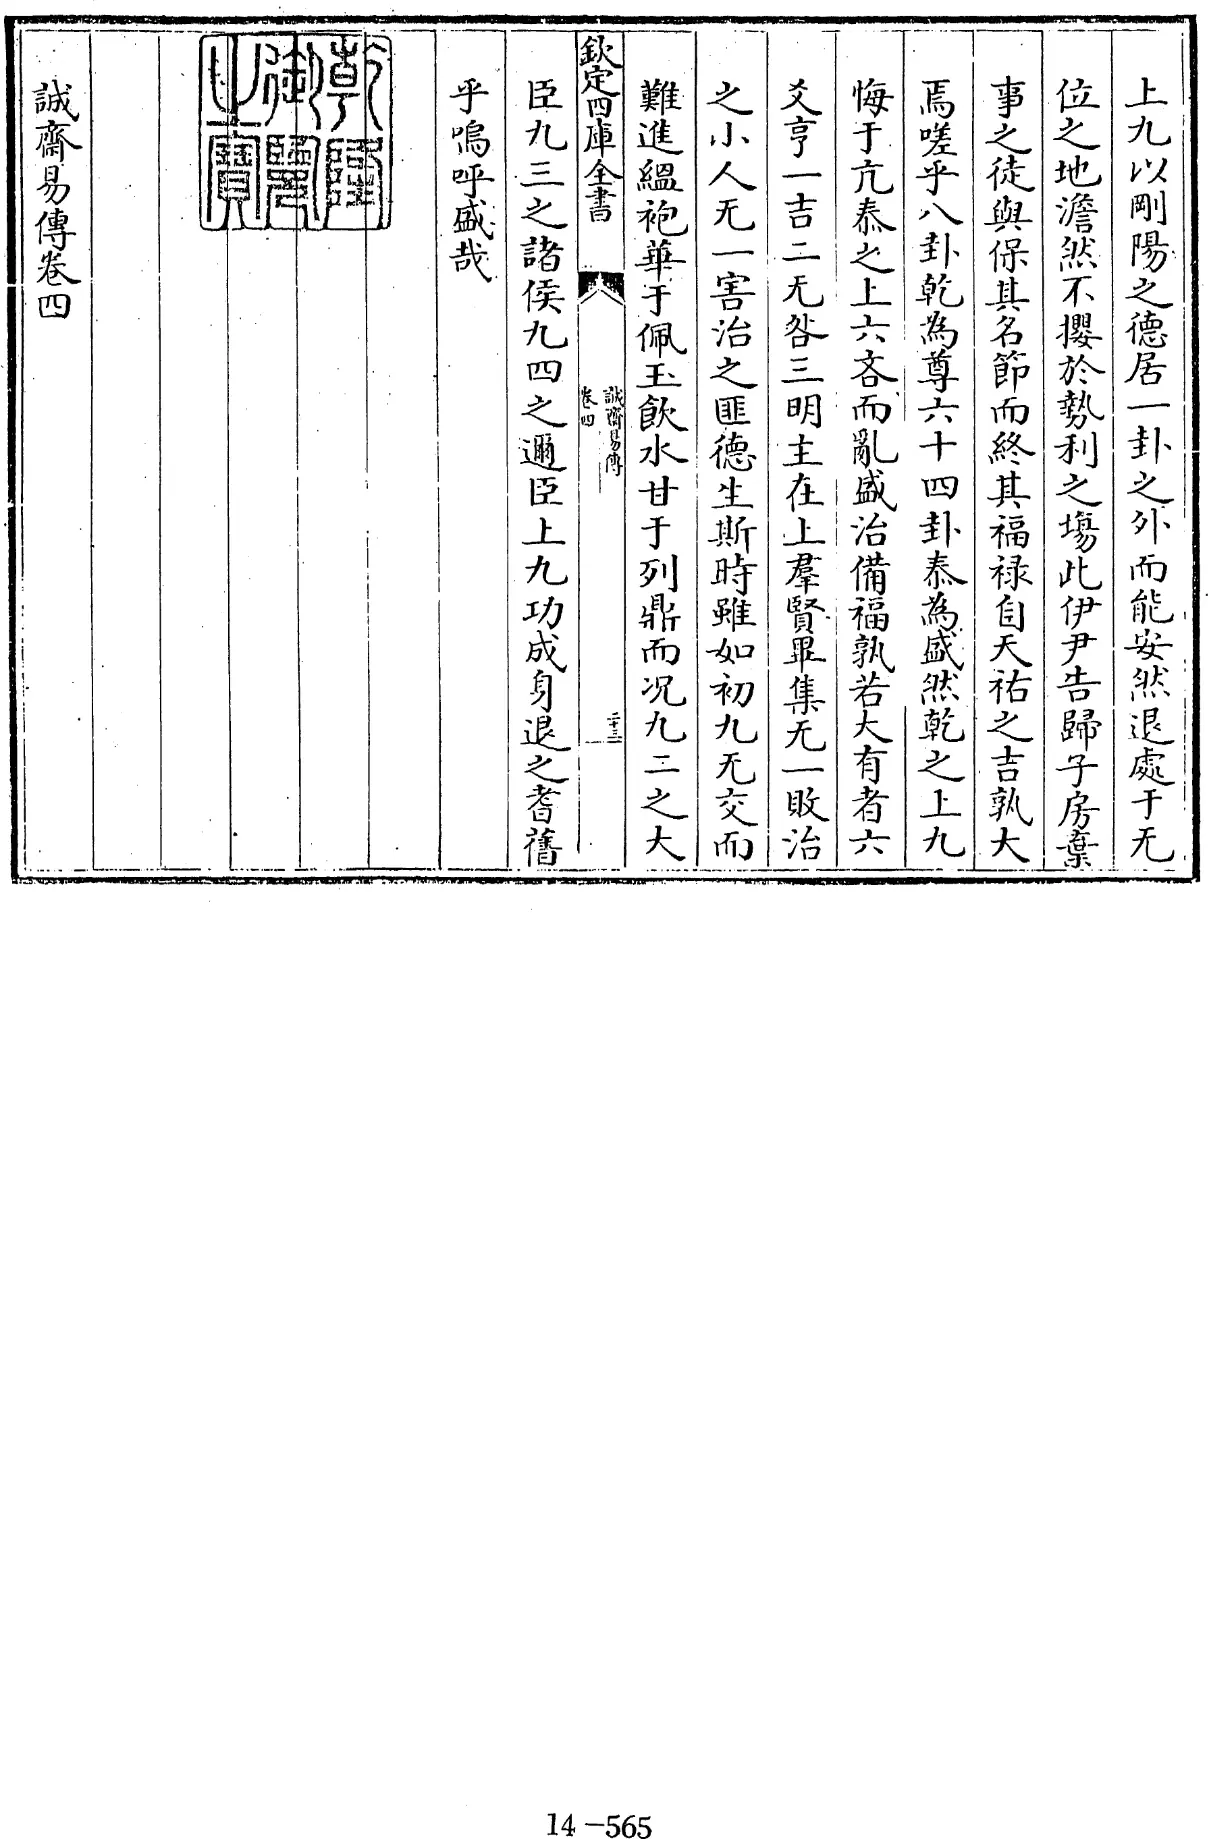 上九以剛陽之德居一卦之外而能安然退處于无
位之地澹然不攖於勢利之塲此伊尹告歸子房棄
事之徒與保其名節而終其福禄自天祐之吉孰大
焉嗟乎八卦乾為尊六十四卦泰為盛然乾之上九
悔于亢泰之上六吝而亂盛治備福孰若大有者六
爻亨一吉二无咎三明主在上羣賢畢集无一敗治
之小人无一害治之匪德生斯時雖如初九无交而
難進縕袍華于佩玉飲水甘于列鼎而况九二之大
欽定四庫全書
誠齋易傳
卷四
二十三
臣九三之諸侯九四之邇臣上九功成身退之耆舊
乎嗚呼盛哉
乾隆御覽之寶
誠齋易傳卷四
14-565